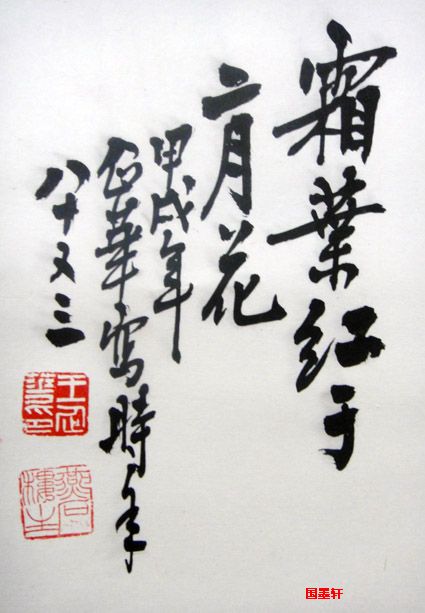 霜葉红于
二月花
甲戌年
企華寫時年
八十又三
王企華印
国墨轩